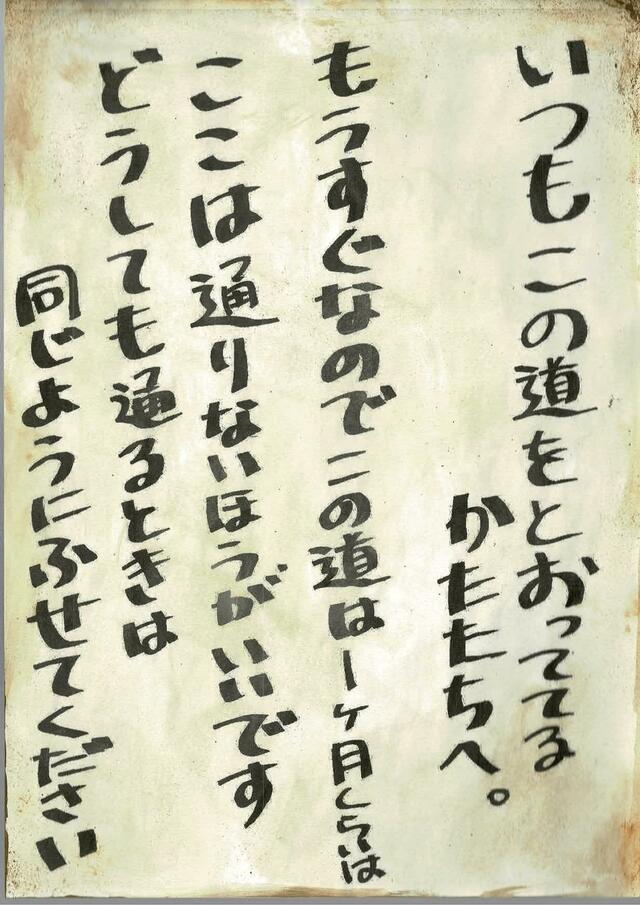 いつもこの道をとおっててる
かたたちへ。
もうすぐなのでこの道は一ヶ月くらいは
ここは通りないほうがいいです
どうしても通るときは
同じようにふせてください